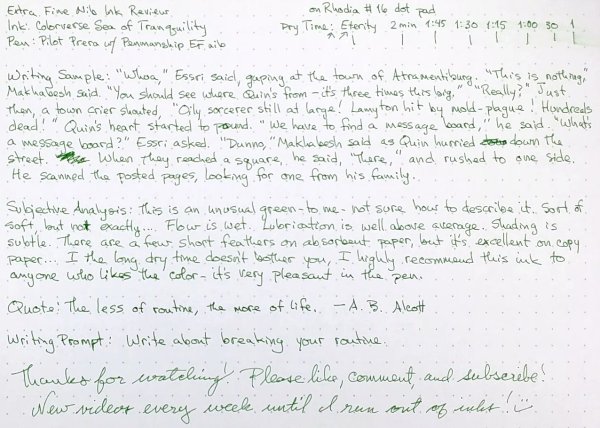 Extra Fine Nib Ink Review on Rhodia #16 dot pad
Ink: Colorverse Sea of Tranquility Dry Time: Eterity 2min 1:45 1:30 1:15 1:00 30 1
Pen: Pilot Prera w/ Penmanship EF nib
Writing Sample: "Whoa," Essri said, gaping at the town of Atramentiburg. "This is nothing,"
Makhabesh said. "You should see where Quin's from – it's three times this big." "Really?" Just
then, a town crier shouted, "Oily sorcerer still at large! Lamyton hit by mold-plague! Hundreds
dead!" Quin's heart started to pound. "We have to find a message board," he said. "What's
a message board?" Essri asked. "Dunno," Makhabesh said as Quin hurried down the
street. When they reached a square, he said, "There," and rushed to one side.
He scanned the posted pages, looking for one from his family.
Subjective Analysis: This is an unusual green – to me – not sure how to describe it. Sort of
soft, but not exactly.... Flow is wet. Lubrication is well above average. Shading is
subtle. There are a few short feathers on absorbent paper, but it's excellent on copy
paper.... I the long dry time doesn't bother you, I highly recommend this ink to
anyone who likes the color – it's very pleasant in the pen.
Quote: The less of routine, the more of life. – A. B. Alcott
Writing Prompt: Write about breaking your routine.
Thanks for watching! Please like, comment, and subscribe!
New videos every week until I run out of inks!